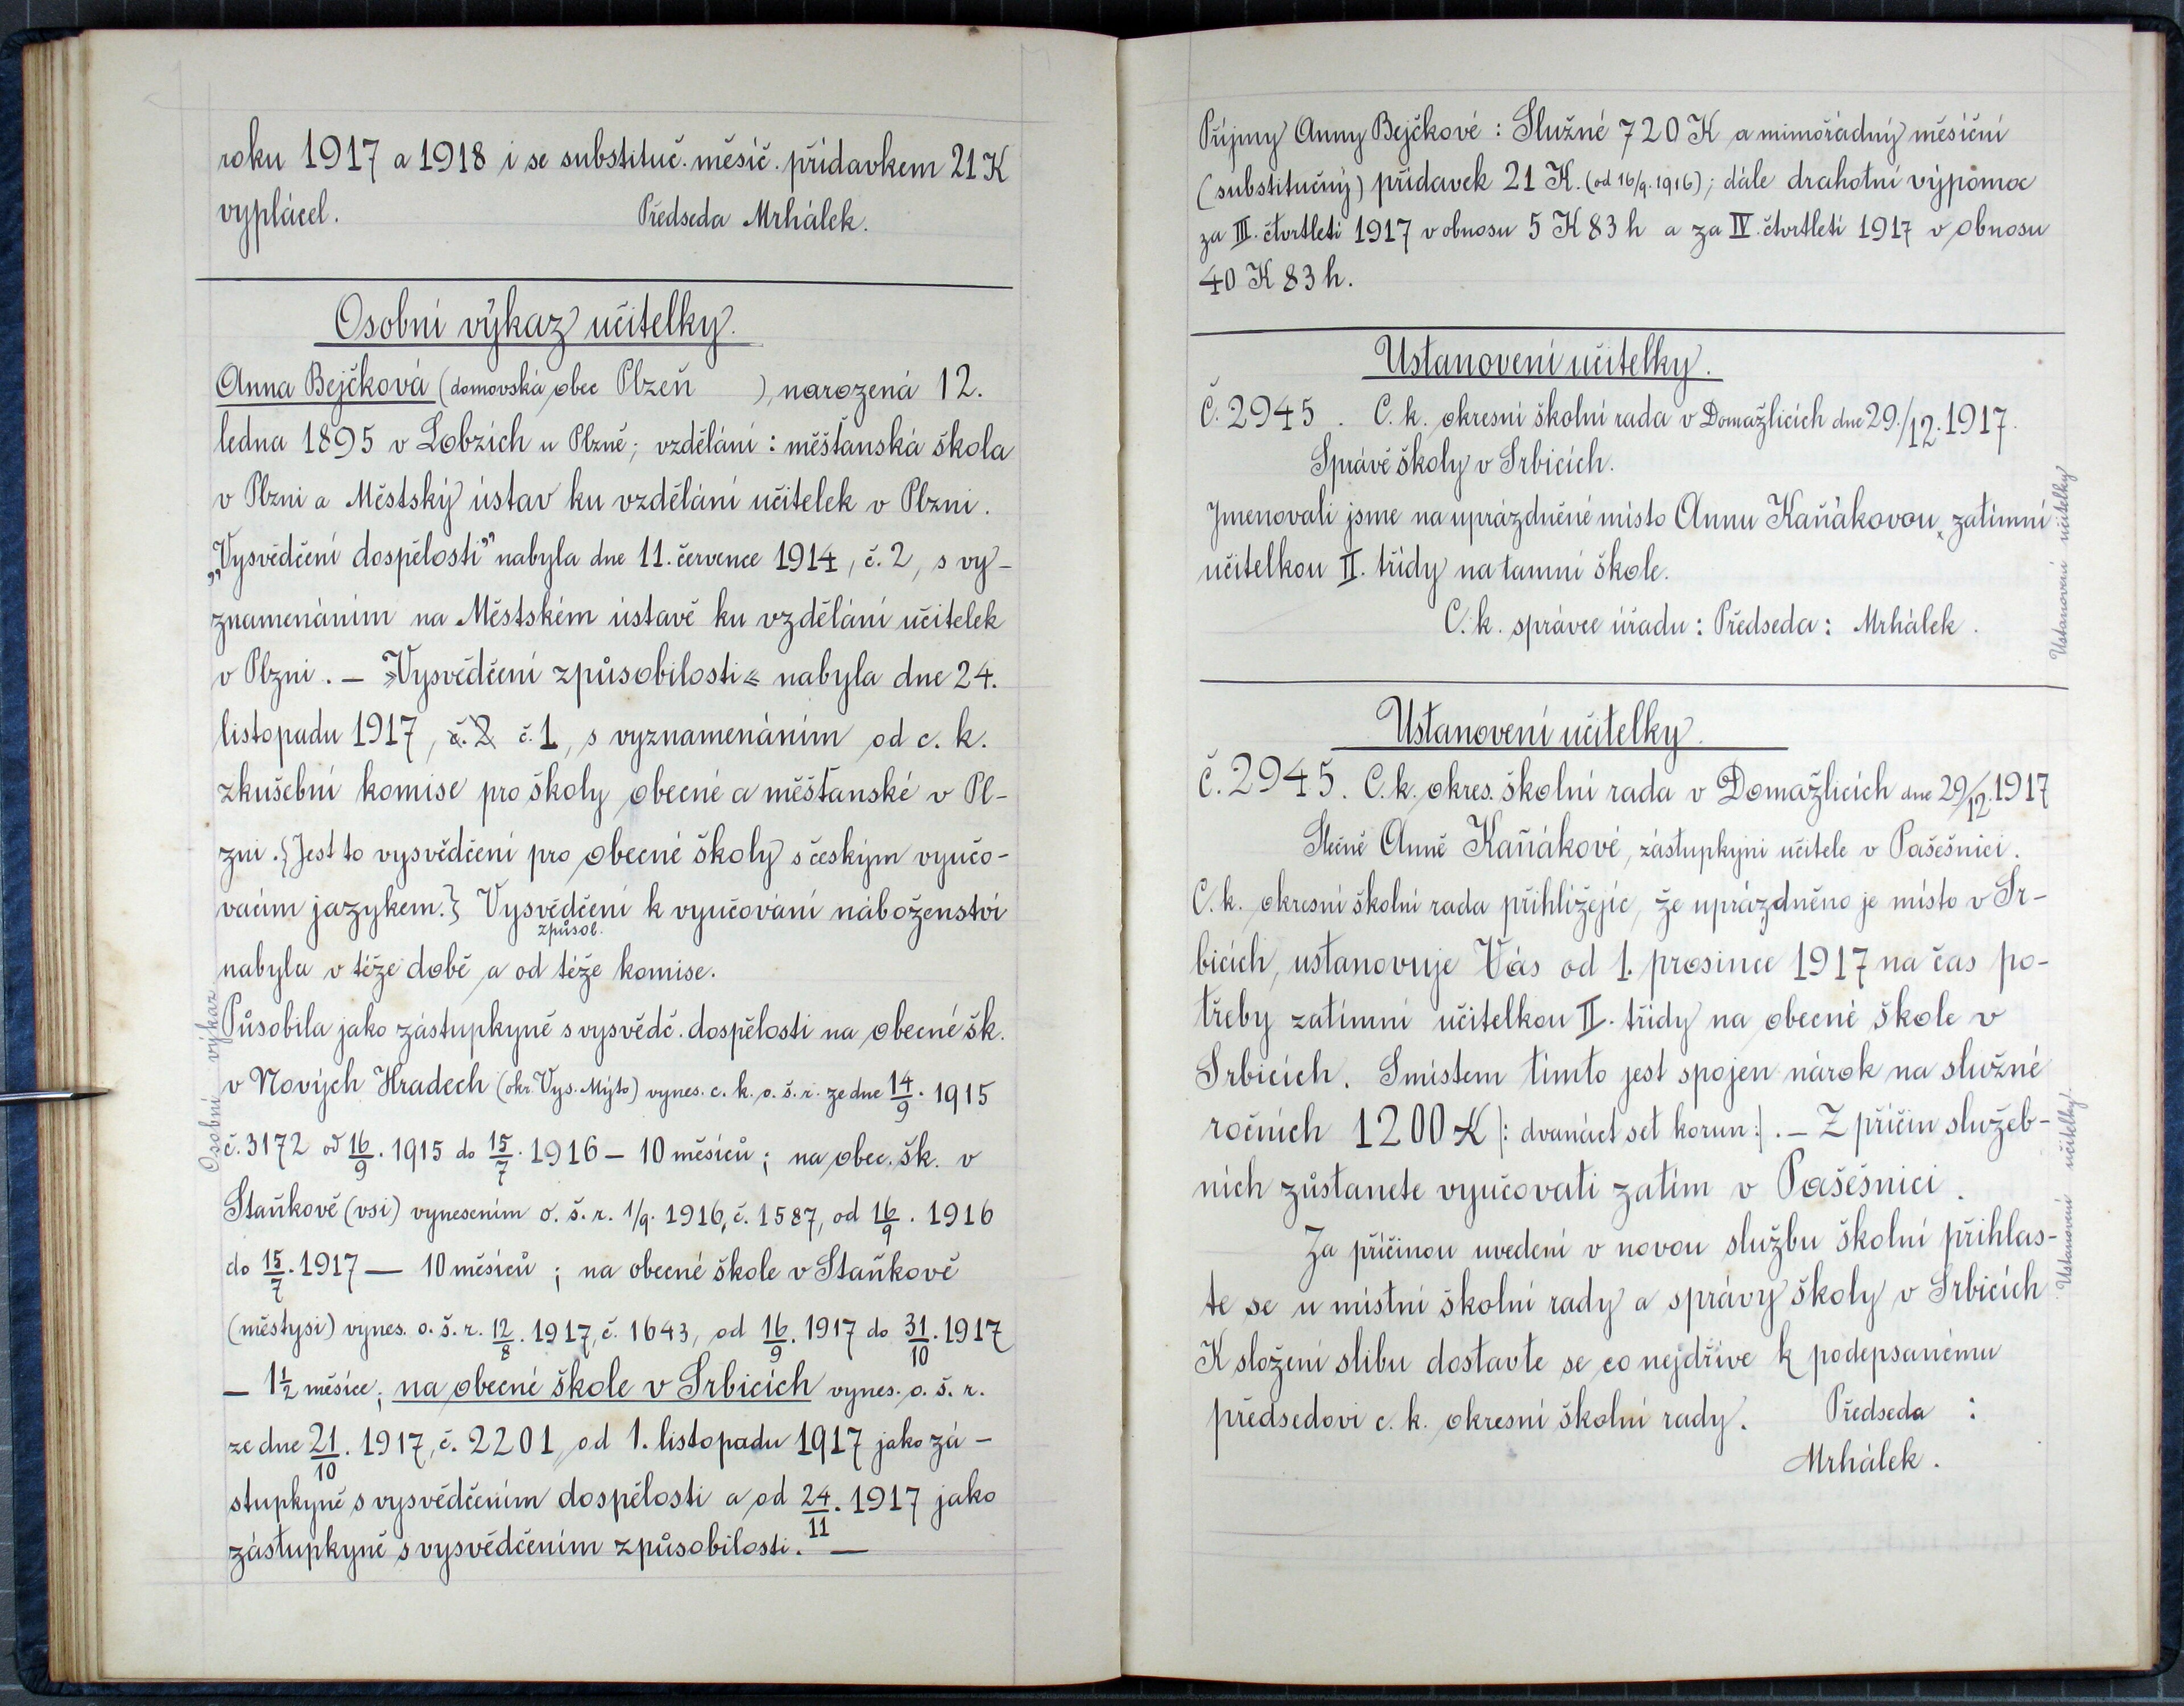 roku 1917 a 1918 i se substituč. měsíč. přídavkem 21 K
vyplácel. Předseda Mrhálek.
Osobní výkaz učitelky.
Anna Bejčková (domovská obec Plzeň ), narozená 12.
ledna 1895 v Lobzích u Plzně; vzdělání: měšťanská škola
v Plzni a Městský ústav ku vzdělání učitelek v Plzni.
„Vysvědčení dospělosti” nabyla dne 11. července 1914, č. 2, s vy-
znamenáním na Městském ústavě ku vzdělání učitelek
v Plzni. — »Vysvědčení způsobilosti« nabyla dne 24.
listopadu 1917, č. 2 č. 1, s vyznamenáním od c. k.
zkušební komise pro školy obecné a měšťanské v Pl-
zni. {Jest to vysvědčení pro obecné školy s českým vyučo-
vacím jazykem.} Vysvědčení k vyučování náboženství
způsob.
nabyla v téže době a od téže komise.
Působila jako zástupkyně s vysvědč. dospělosti na obecné šk.
v Nových Hradech (okr. Vys. Mýto) vynes. c. k. o. š. r. ze dne 14/9. 1915
č. 3172 od 16/9. 1915 do 15/7. 1916 — 10 měsíců; na obec. šk. v
Staňkově (vsi) vynesením o. š. r. 1/9. 1916, č. 1587, od 16/9. 1916
do 15/7. 1917 — 10 měsíců; na obecné škole v Staňkově
(městysi) vynes. o. š. r. 12/8. 1917, č. 1643, od 16/9. 1917 do 31/10. 1917
— 1½ měsíce; na obecné škole v Srbicích vynes. o. š. r.
ze dne 21/10. 1917, č. 2201, od 1. listopadu 1917 jako zá-
stupkyně s vysvědčením dospělosti a od 24/11. 1917 jako
zástupkyně s vysvědčením způsobilosti. —
Osobní výkaz
Příjmy Anny Bejčkové: Služné 720 K a mimořádný měsíční
(substitučný) přídavek 21 K. (od 16/9. 1916); dále drahotní výpomoc
za III. čtvrtletí 1917 v obnosu 5 K 83 h a za IV. čtvrtletí 1917 v obnosu
40 K 83 h.
Ustanovení učitelky.
Č. 2945. C. k. okresní školní rada v Domažlicích dne 29./12. 1917.
Správě školy v Srbicích.
Jmenovali jsme na uprázdněné místo Annu Kaňákovou, zatímní
učitelkou II. třídy na tamní škole.
C. k. správce úřadu: Předseda: Mrhálek.
Ustanovení učitelky
Ustanovení učitelky.
Č. 2945. C. k. okres. školní rada v Domažlicích dne 29/12. 1917
Slečně Anně Kaňákové, zástupkyni učitele v Pašešnici.
C. k. okresní školní rada přihlížejíc, že uprázdněno je místo v Sr-
bicích, ustanovuje Vás od 1. prosince 1917 na čas po-
třeby zatímní učitelkou II. třídy na obecné škole v
Srbicích. S místem tímto jest spojen nárok na služné
ročních 1200 K |: dvanáct set korun :|. — Z příčin služeb-
ních zůstanete vyučovati zatím v Pašešnici.
Za příčinou uvedení v novou službu školní přihlas-
te se u místní školní rady a správy školy v Srbicích
K složení slibu dostavte se co nejdříve k podepsanému
předsedovi c. k. okresní školní rady. Předseda :
Mrhálek.
Ustanovení učitelky